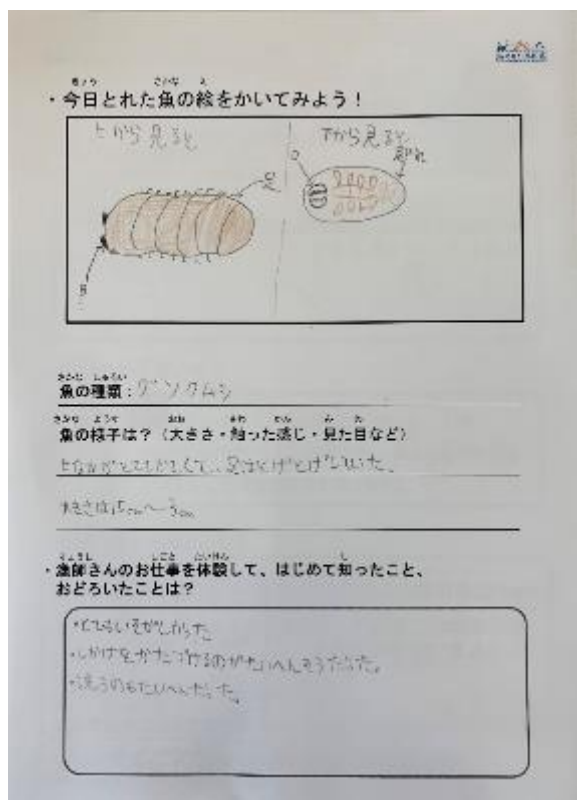 ・今日とれた魚の絵をかいてみよう！
上から見ると
下から見ると
口
足
目
魚の種類：グソクムシ
魚の様子は？（大きさ・触った感じ・見た目など）
せなかがとてもかたくて、足はとげとげしていた。
大きさは、5cm〜3cm
・漁師さんのお仕事を体験して、はじめて知ったこと、
おどろいたことは？
・とてもいそがしかった
・しかけをかたづけるのがたいへんそうだった。
・洗うのもたいへんだった。